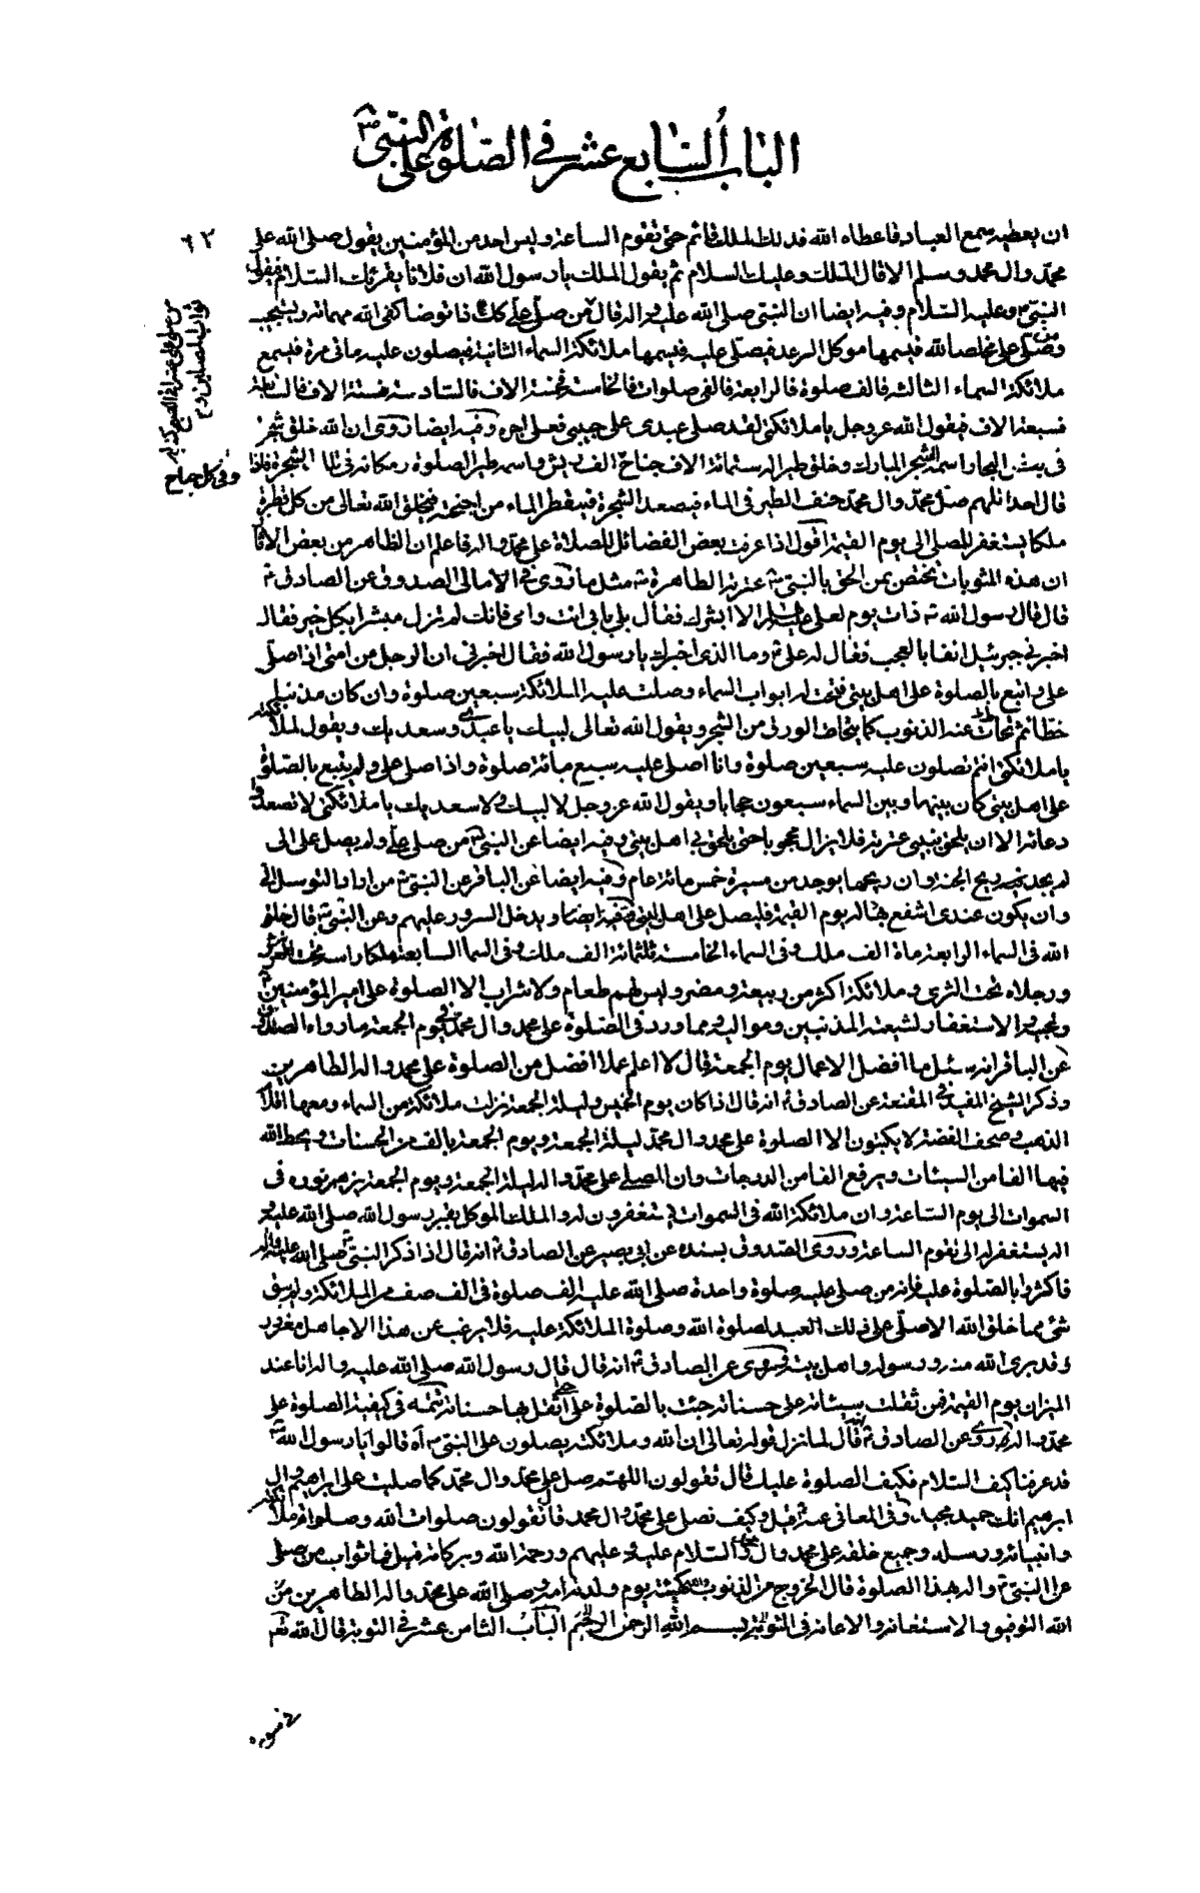 الباب السابع عشر في الصلوة على النبي ص
٦٢
ان يعطيه سمع العباد فاعطاه الله فذلك الملك قائم حتى تقوم الساعة وليس احد من المؤمنين يقول صلى الله على
محمد وال محمد وسلم الا قال الملك وعليك السلام ثم يقول الملك يا رسول الله ان فلانا يقرئك السلام فيقول
النبي ص وعليه السلام وفيه ايضا ان النبي صلى الله عليه واله قال من صلى علي كك ذا توضا كفى الله مهماته ويستجيب
ومن صلى علي مخلصا لله فيسمعها موكل الرعد فيصلى عليه فيسمعها ملائكة السماء الثانية فيصلون عليه مائة مرة فيسمع
ملائكة السماء الثالثة فالف صلوة فالرابعة فالفى صلوات فالخامسة فخمسة الاف فالسادسة فستة الاف فالسابعة
فسبعة الاف فيقول الله عز وجل يا ملائكتى لقد صلى عبدى على حبيبى فعلى اجره وفيه ايضا روى ان الله خلق شجرة
فى بعض البحار اسمه الشجر المبارك وخلق طير اله ستمائة الاف جناح الف ريش واسمه طير الصلوة ومكانه فى تلك الشجرة فاذا
قال احد اللهم صل محمد وال محمد الطير فى الماء فيصعد الشجرة فيقطر الماء من اجنحته فيخلق الله تعالى من كل قطرة
ملكا يستغفر للمصلى الى يوم القيمة اقول اذا عرفت بعض الفضائل للصلاة على محمد واله فاعلم ان الظاهر من بعض الاثار
ان هذه المثوبات تختص بمن الحق بالنبى ص عترته الطاهرة مثل ما روى فى الامالى الصدوق عن الصادق ع
قال قال رسول الله ص ذات يوم لعلى عليه السلام الا ابشرك فقال بلى بابى انت وامى فانك لم تزل مبشرا بكل خير فقال
اخبرنى جبرئيل انفا بالعجب فقال له على ع وما الذى اخبرك يا رسول الله فقال اخبرنى ان الرجل من امتى اذا صلى
على واتبع بالصلوة على اهل بيتى فتحت له ابواب السماء وصلت عليه الملائكة سبعين صلوة وان كان مذنبا
خطائا ثم تحات عنه الذنوب كما يتحات الورق من الشجر ويقول الله تعالى لبيك يا عبدى وسعديك ويقول لملائكته
يا ملائكتى انتم تصلون عليه سبعين صلوة وانا اصلى عليه سبع مائة صلوة واذا صلى على ولم يتبع بالصلوة
على اهل بيتى كان بينها وبين السماء سبعون حجابا ويقول الله عز وجل لا لبيك ولا سعديك يا ملائكتى لا تصعدوا
دعائه الا ان يلحق بنبيى عترته فلا يزال محجوبا حتى يلحق بى اهل بيتى وفيه ايضا عن النبى ص من صلى على ولم يصل على الى
لم يجد ريح الجنة وان ريحها يوجد من مسيرة خمس مائة عام وفيه ايضا عن الباقر عن النبى ص من اراد التوسل الى
وان يكون عندى اشفع بها له يوم القيمة فليصل على اهل بيتى ويدخل السرور عليهم وعن النبى ص قال خلق
الله فى السماء الرابعة مائة الف ملك وفى السماء الخامسة ثلثمائة الف ملك وفى السما السابعة ملكا راسه تحت العرش
ورجلاه تحت الثرى وملائكة اكثر من ربيعة ومضر وليس لهم طعام ولا شراب الا الصلوة على امير المؤمنين ع
ومحبيه والاستغفار لشيعته المذنبين ومواليه ومما ورد فى الصلوة على محمد وال محمد فى يوم الجمعة ما رواه الصدوق
عن الباقر انه سئل ما افضل الاعمال يوم الجمعة قال لا اعلم عملا افضل من الصلوة على محمد واله الطاهرين
وذكر الشيخ المفيد فى المقنعة عن الصادق ع انه قال اذا كان يوم الخميس وليلة الجمعة نزلت ملائكة من السماء ومعها اقلام
الذهب وصحف الفضة لا يكتبون الا الصلوة على محمد وال محمد ليلة الجمعة ويوم الجمعة بالف من الحسنات ويحط الله
فيها الفا من السيئات ويرفع الفا من الدرجات وان المصلى على محمد واله ليلة الجمعة ويوم الجمعة يزهر نوره فى
السموات الى يوم الساعة وان ملائكة الله فى السموات يستغفرون له والملك الموكل بقبر رسول الله صلى الله عليه و
اله يستغفر له الى تقوم الساعة وروى الصدوق بسنده عن ابى بصير عن الصادق ع انه قال اذا ذكر النبى صلى الله عليه واله
فاكثروا بالصلوة عليه فانه من صلى عليه صلوة واحدة صلى الله عليه الف صلوة فى الف صف من الملائكة ولم يبق
شئ مما خلق الله الا صلى على ذلك العبد لصلوة الله وصلوة الملائكة عليه فلا يرغب عن هذا الا جاهل مغرور
وقد برى الله منه ورسوله واهل بيته وروى عن الصادق ع انه قال قال رسول الله صلى الله عليه واله انا عند
الميزان يوم القيمة فمن ثقلت سيئاته على حسناته جئت بالصلوة على حتى اثقل بها حسناته تتمه فى كيفية الصلوة على
محمد واله روى عن الصادق ع قال لما نزل قوله تعالى ان الله وملائكته يصلون على النبى اه قالوا يا رسول الله ص
قد عرفنا كيف السلام فكيف الصلوة عليك قال تقولون اللهم صل على محمد وال محمد كما صليت على ابراهيم وال
ابرهيم انك حميد مجيد وفى المعانى عنه ع قيل وكيف نصلى على محمد وال محمد قال تقولون صلوات الله وصلوات ملائكته
وانبيائه ورسله وجميع خلقه على محمد وال محمد والسلام عليه وعليهم ورحمة الله وبركاته قيل فما ثواب من صلى
على النبى ص واله بهذا الصلوة قال الخروج من الذنوب كهيئة يوم ولدته امه وصلى الله على محمد واله الطاهرين من
الله التوفيق والاستغاثه والاعانة فى بسم الله الرحمن الرحيم الباب الثامن عشر فى التوبة قال الله تعالى
وفى كل جناح
فى سورة